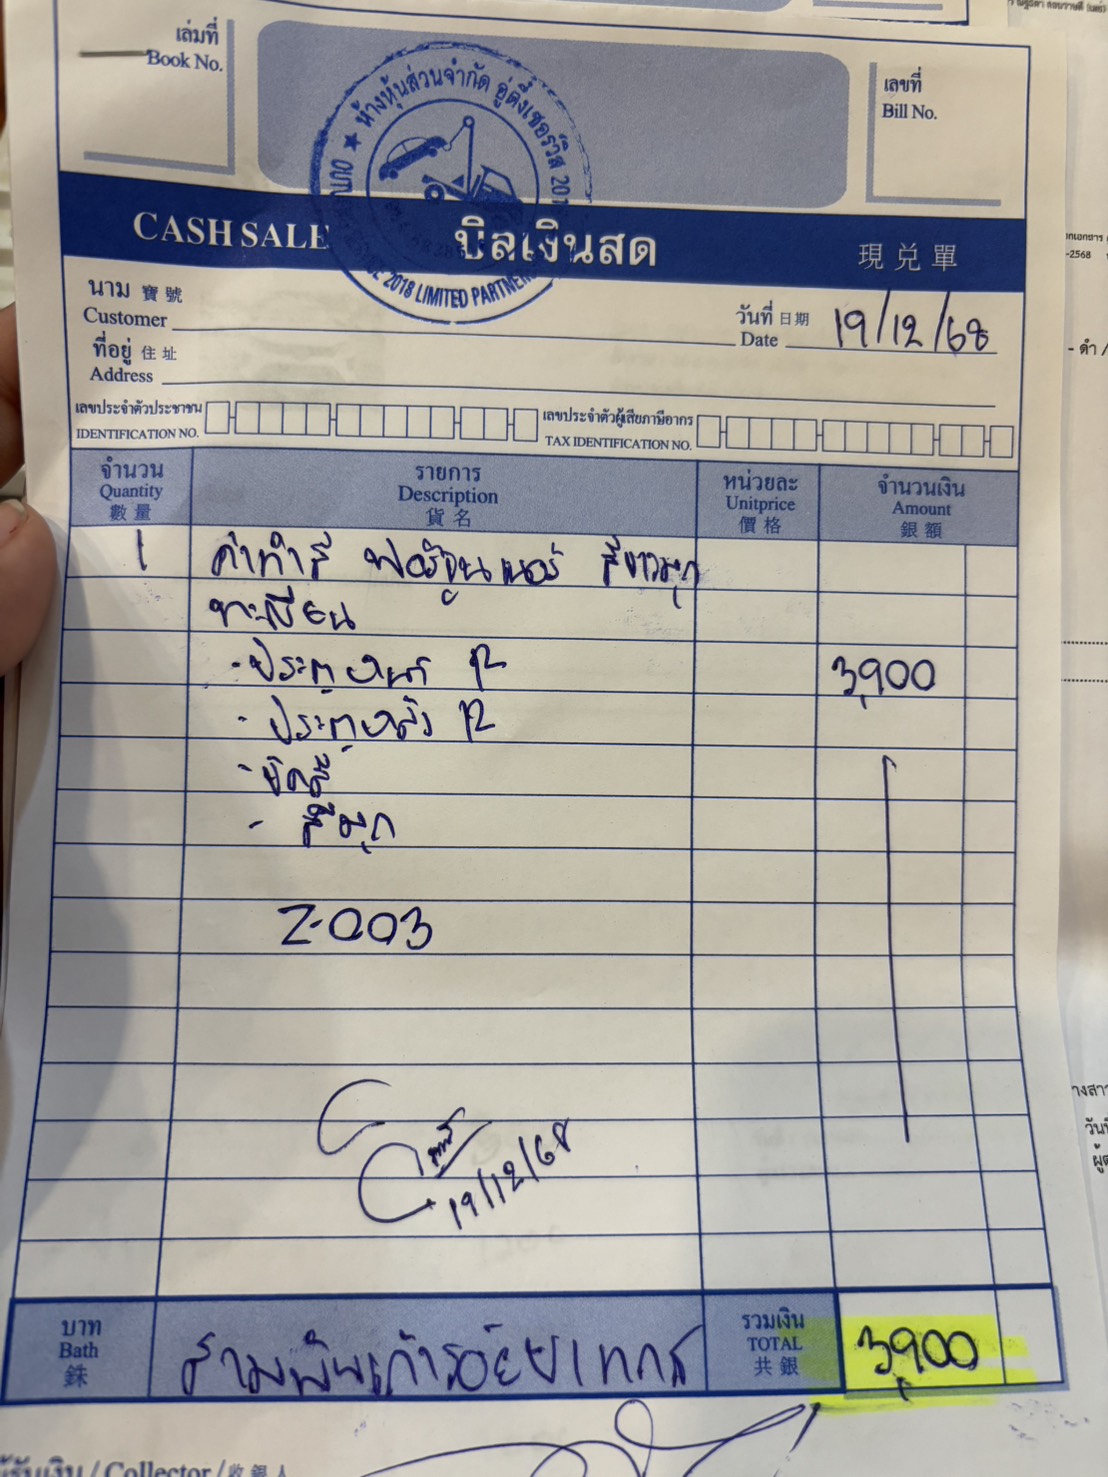 เล่มที่
Book No.
เลขที่
Bill No.
★ ห้างหุ้นส่วนจำกัด อู่ตึ๋งเซอร์วิส
2018 LIMITED
CASH SALE บิลเงินสด 現兑單
นาม 寶號
Customer
วันที่ 日期
Date 19/12/68
ที่อยู่ 住址
Address
เลขประจำตัวประชาชน
IDENTIFICATION NO.
เลขประจำตัวผู้เสียภาษีอากร
TAX IDENTIFICATION NO.
จำนวน รายการ หน่วยละ จำนวนเงิน
Quantity Description Unitprice Amount
數量 貨名 價格 銀額
1 ค่าทำสี ฟอร์จูนเนอร์ สีขาวมุก
ทะเบียน
- ประตูหน้า R 3,900
- ประตูหลัง R
- ขัดสี
- สีมุก
Z-003
19/12/68
บาท
Bath
銖
สามพันเก้าร้อยบาท
รวมเงิน
TOTAL
共銀
3,900
ผู้รับเงิน / Collector / 收銀人